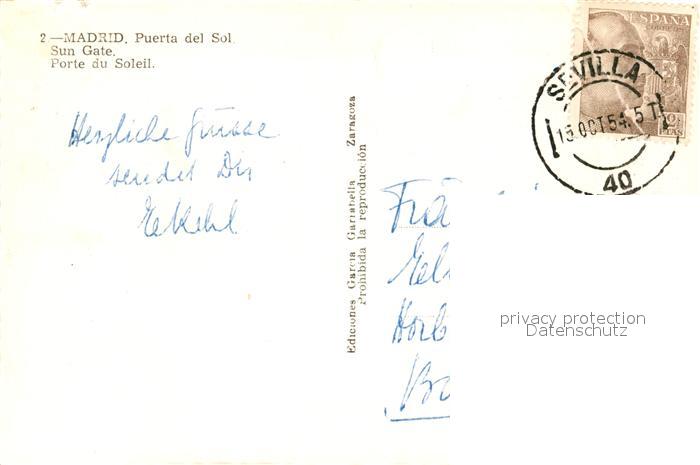 2 —MADRID. Puerta del Sol.
Sun Gate.
Porte du Soleil.
Herzliche Grüsse
sendet Dir
Ediciones García Garrabella Zaragoza
Prohibida la reproducción
ESPAÑA
CORREOS
2 PTAS
SEVILLA
15 OCT 54. 5 T
40
Frä
privacy protection
Datenschutz